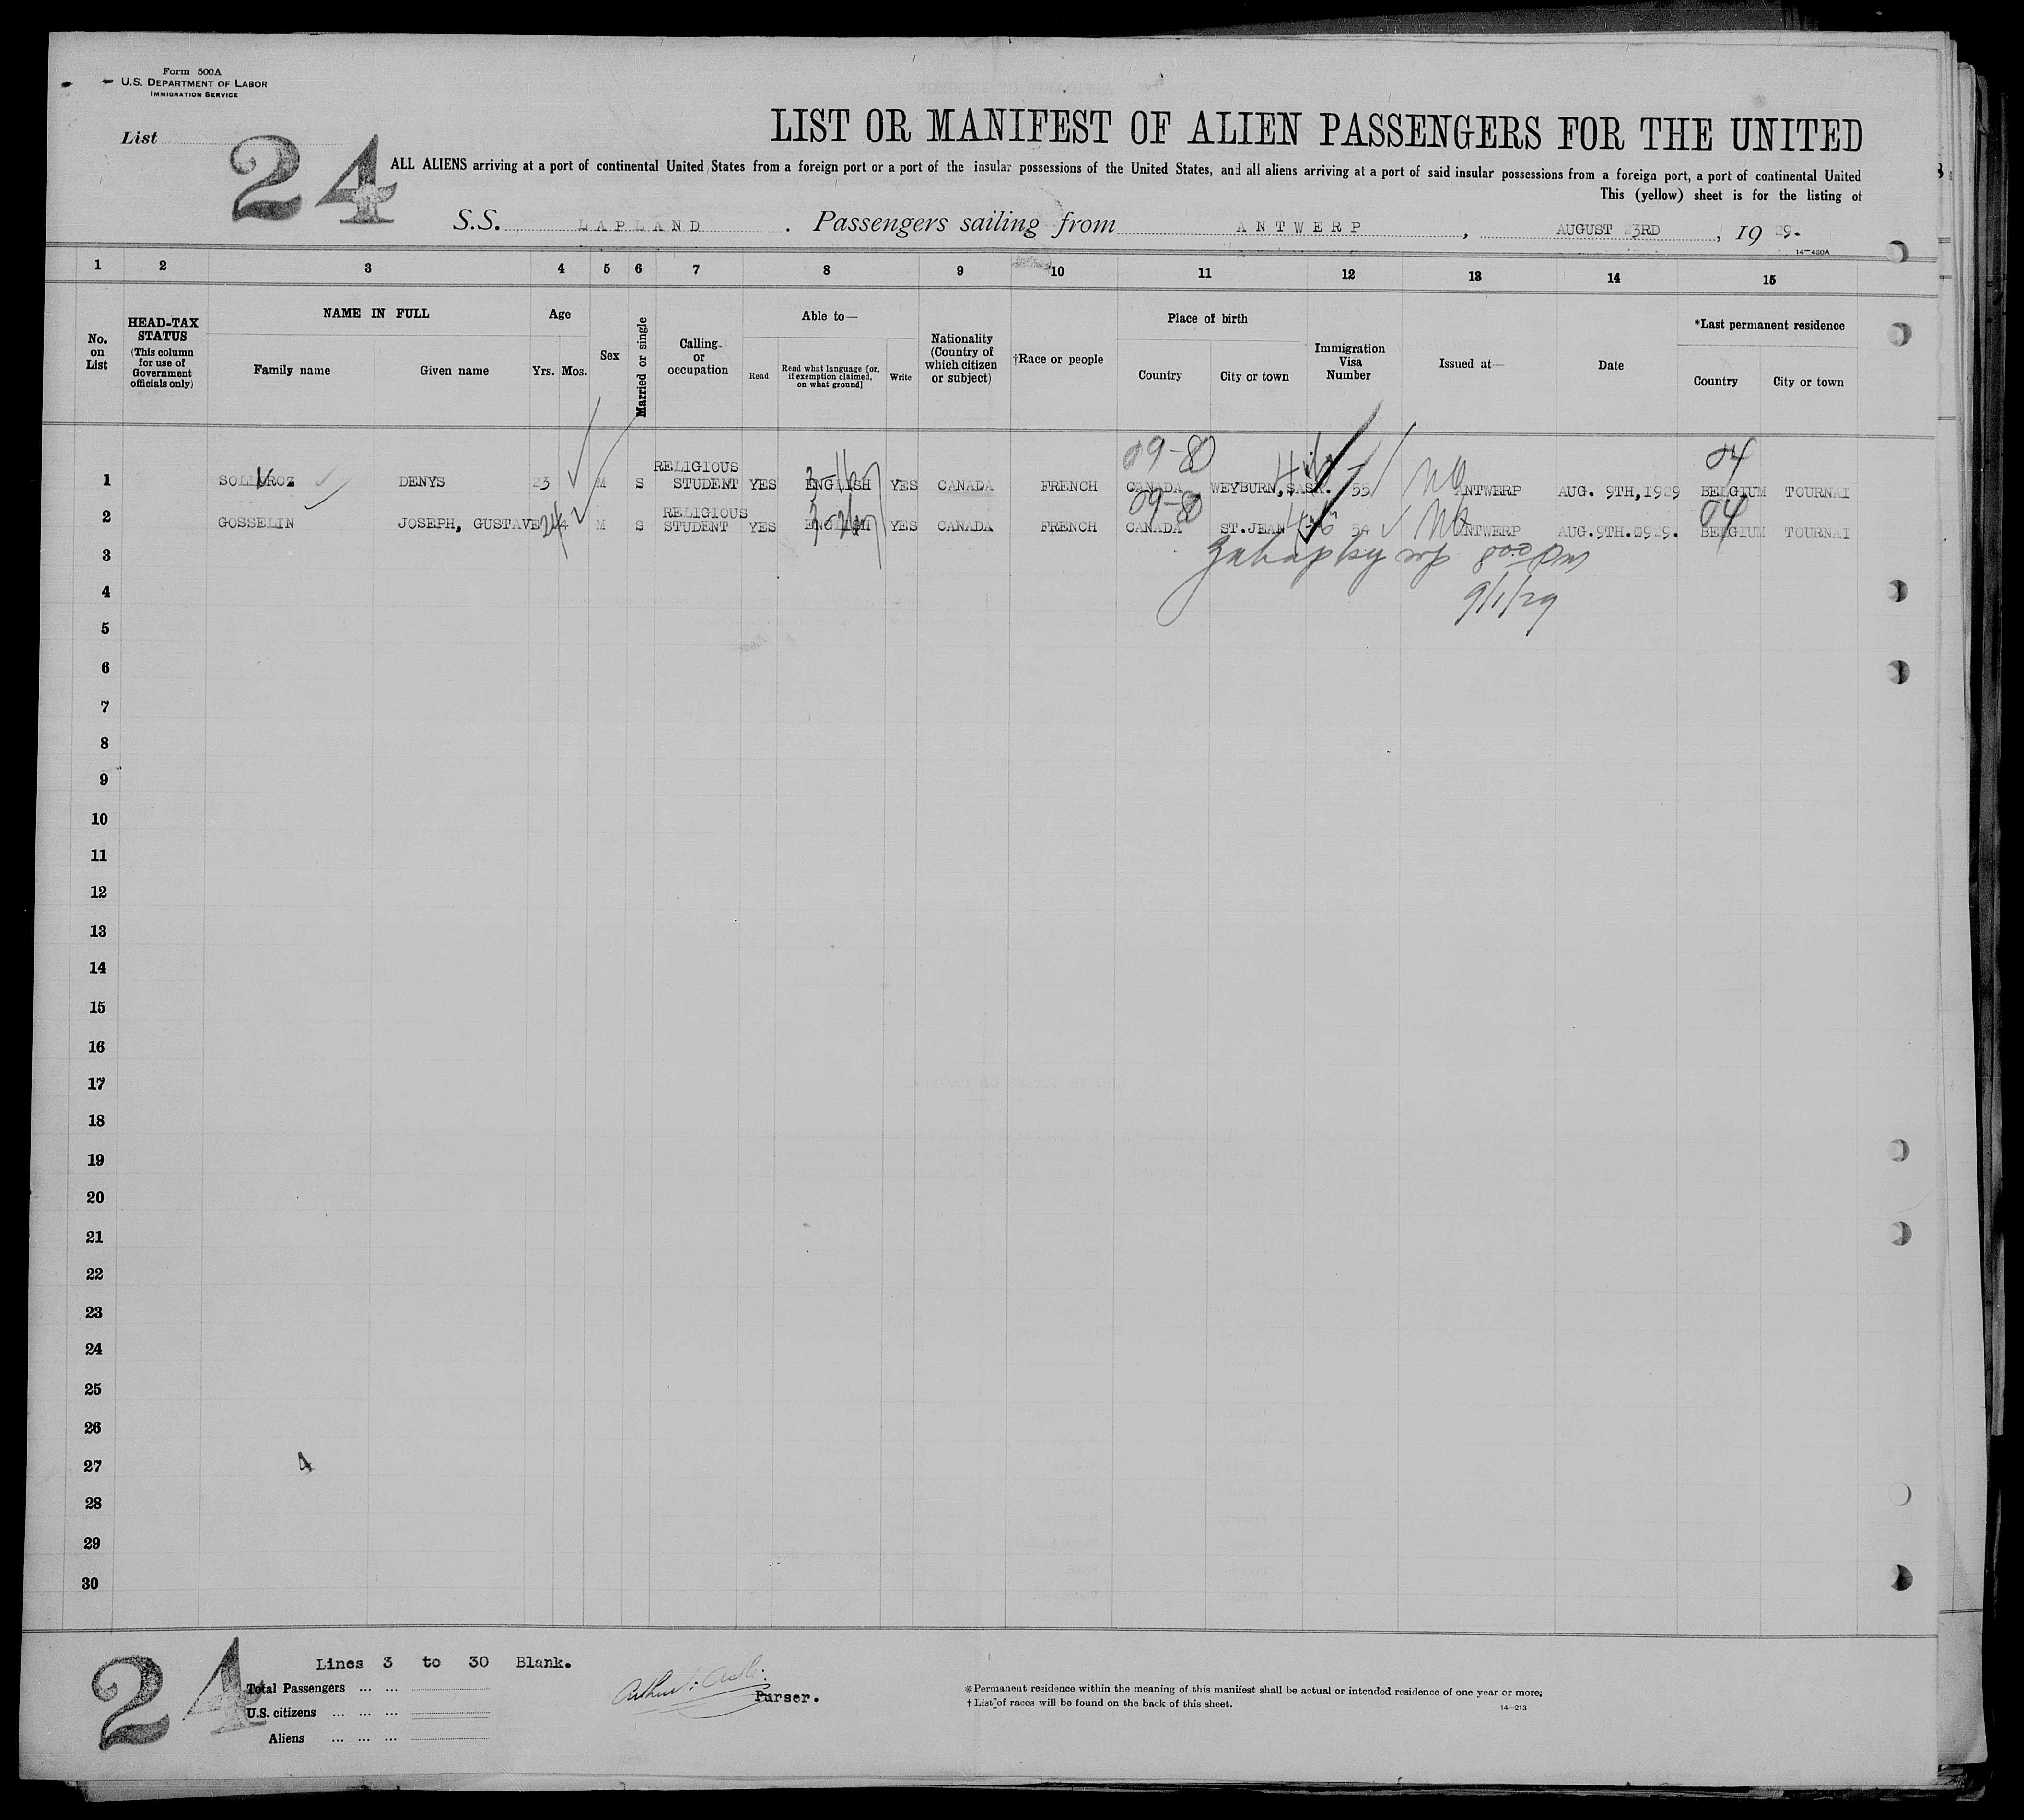 Form 500A
U.S. DEPARTMENT OF LABOR
IMMIGRATION SERVICE
List 24
LIST OR MANIFEST OF ALIEN PASSENGERS FOR THE UNITED
ALL ALIENS arriving at a port of continental United States from a foreign port or a port of the insular possessions of the United States, and all aliens arriving at a port of said insular possessions from a foreign port, a port of continental United
This (yellow) sheet is for the listing of
S.S. LAPLAND . Passengers sailing from ANTWERP , AUGUST 23RD , 19 29.
14-430A
1 2 3 4 5 6 7 8 9 10 11 12 13 14 15
No. on List
HEAD-TAX STATUS (This column for use of Government officials only)
NAME IN FULL
Family name Given name
Age
Yrs. Mos.
Sex
Married or single
Calling or occupation
Able to—
Read Read what language [or, if exemption claimed, on what ground] Write
Nationality (Country of which citizen or subject)
†Race or people
Place of birth
Country City or town
Immigration Visa Number
Issued at—
Date
*Last permanent residence
Country City or town
09-80 04
1 DENYS 23 M S RELIGIOUS STUDENT YES ENGLISH YES CANADA FRENCH CANADA WEYBURN,SASK. 55 ANTWERP AUG. 9TH,1929 BELGIUM TOURNAI
09-80 04
2 GOSSELIN JOSEPH, GUSTAVE 24 M S RELIGIOUS STUDENT YES ENGLISH YES CANADA FRENCH CANADA ST.JEAN 54 ANTWERP AUG.9TH.1929. BELGIUM TOURNAI
3
9/1/29
4
5
6
7
8
9
10
11
12
13
14
15
16
17
18
19
20
21
22
23
24
25
26
27 4
28
29
30
24
Lines 3 to 30 Blank.
Total Passengers ... ...
U.S. citizens ... ... ...
Aliens ... ... ...
Purser.
*Permanent residence within the meaning of this manifest shall be actual or intended residence of one year or more;
† List of races will be found on the back of this sheet.
14-213